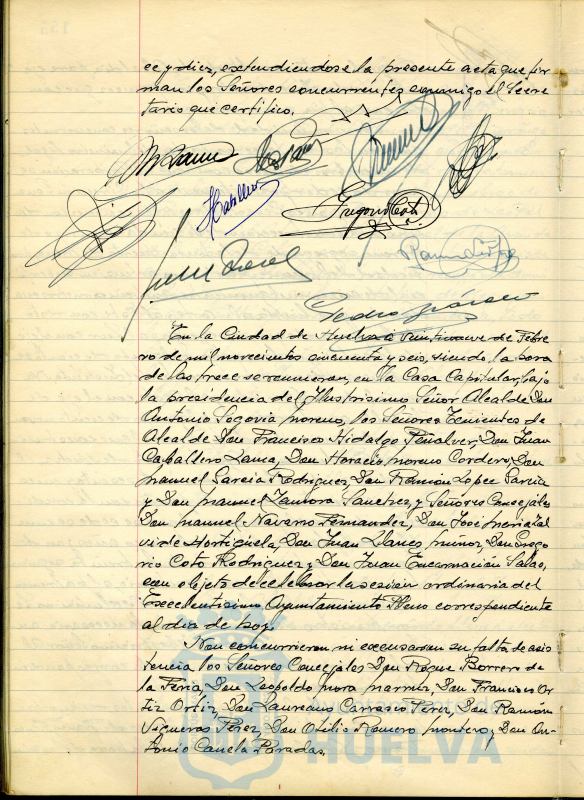 ce y diez, extendiendose la presente acta que fir
man los Señores concurrentes conmigo el Secre
tario que certifico.
Gregorio Coto
Pedro
En la Ciudad de Huelva a veintinueve de Febre
ro de mil novecientos cincuenta y seis, siendo la hora
de las trece se reunieron, en la Casa Capitular, bajo
la presidencia del Ilustrisimo Señor Alcalde Don
Antonio Segovia Moreno, los Señores Tenientes de
Alcalde Don Francisco Hidalgo Peñalver, Don Juan
Caballero Lanca, Don Horacio Moreno Cordero, Don
Manuel Garcia Rodriguez, Don Ramón Lopez Garcia
y Don Manuel Zamora Sanchez, y Señores Concejales
Don Manuel Navarro Fernandez, Don Jose Maria Zal
vide Hortigüela, Don Juan Llanes Muñoz, Don Grego
rio Coto Rodriguez y Don Juan Encarnación Salas,
con objeto de celebrar la sesión ordinaria del
Excelentisimo Ayuntamiento Pleno correspondiente
al dia de hoy.
Non concurrieron ni excusaron su falta de asis
tencia los Señores Concejales Don Roque Borrero de
la Feria, Don Leopoldo Mora Don Francisco Or
tiz Ortiz, Don Laureano Carrasco Perez, Don Ramón
Figueroa Perez, Don Otilio Romero Montero, y Don An-
tonio Canela Paradas.
HUELVA